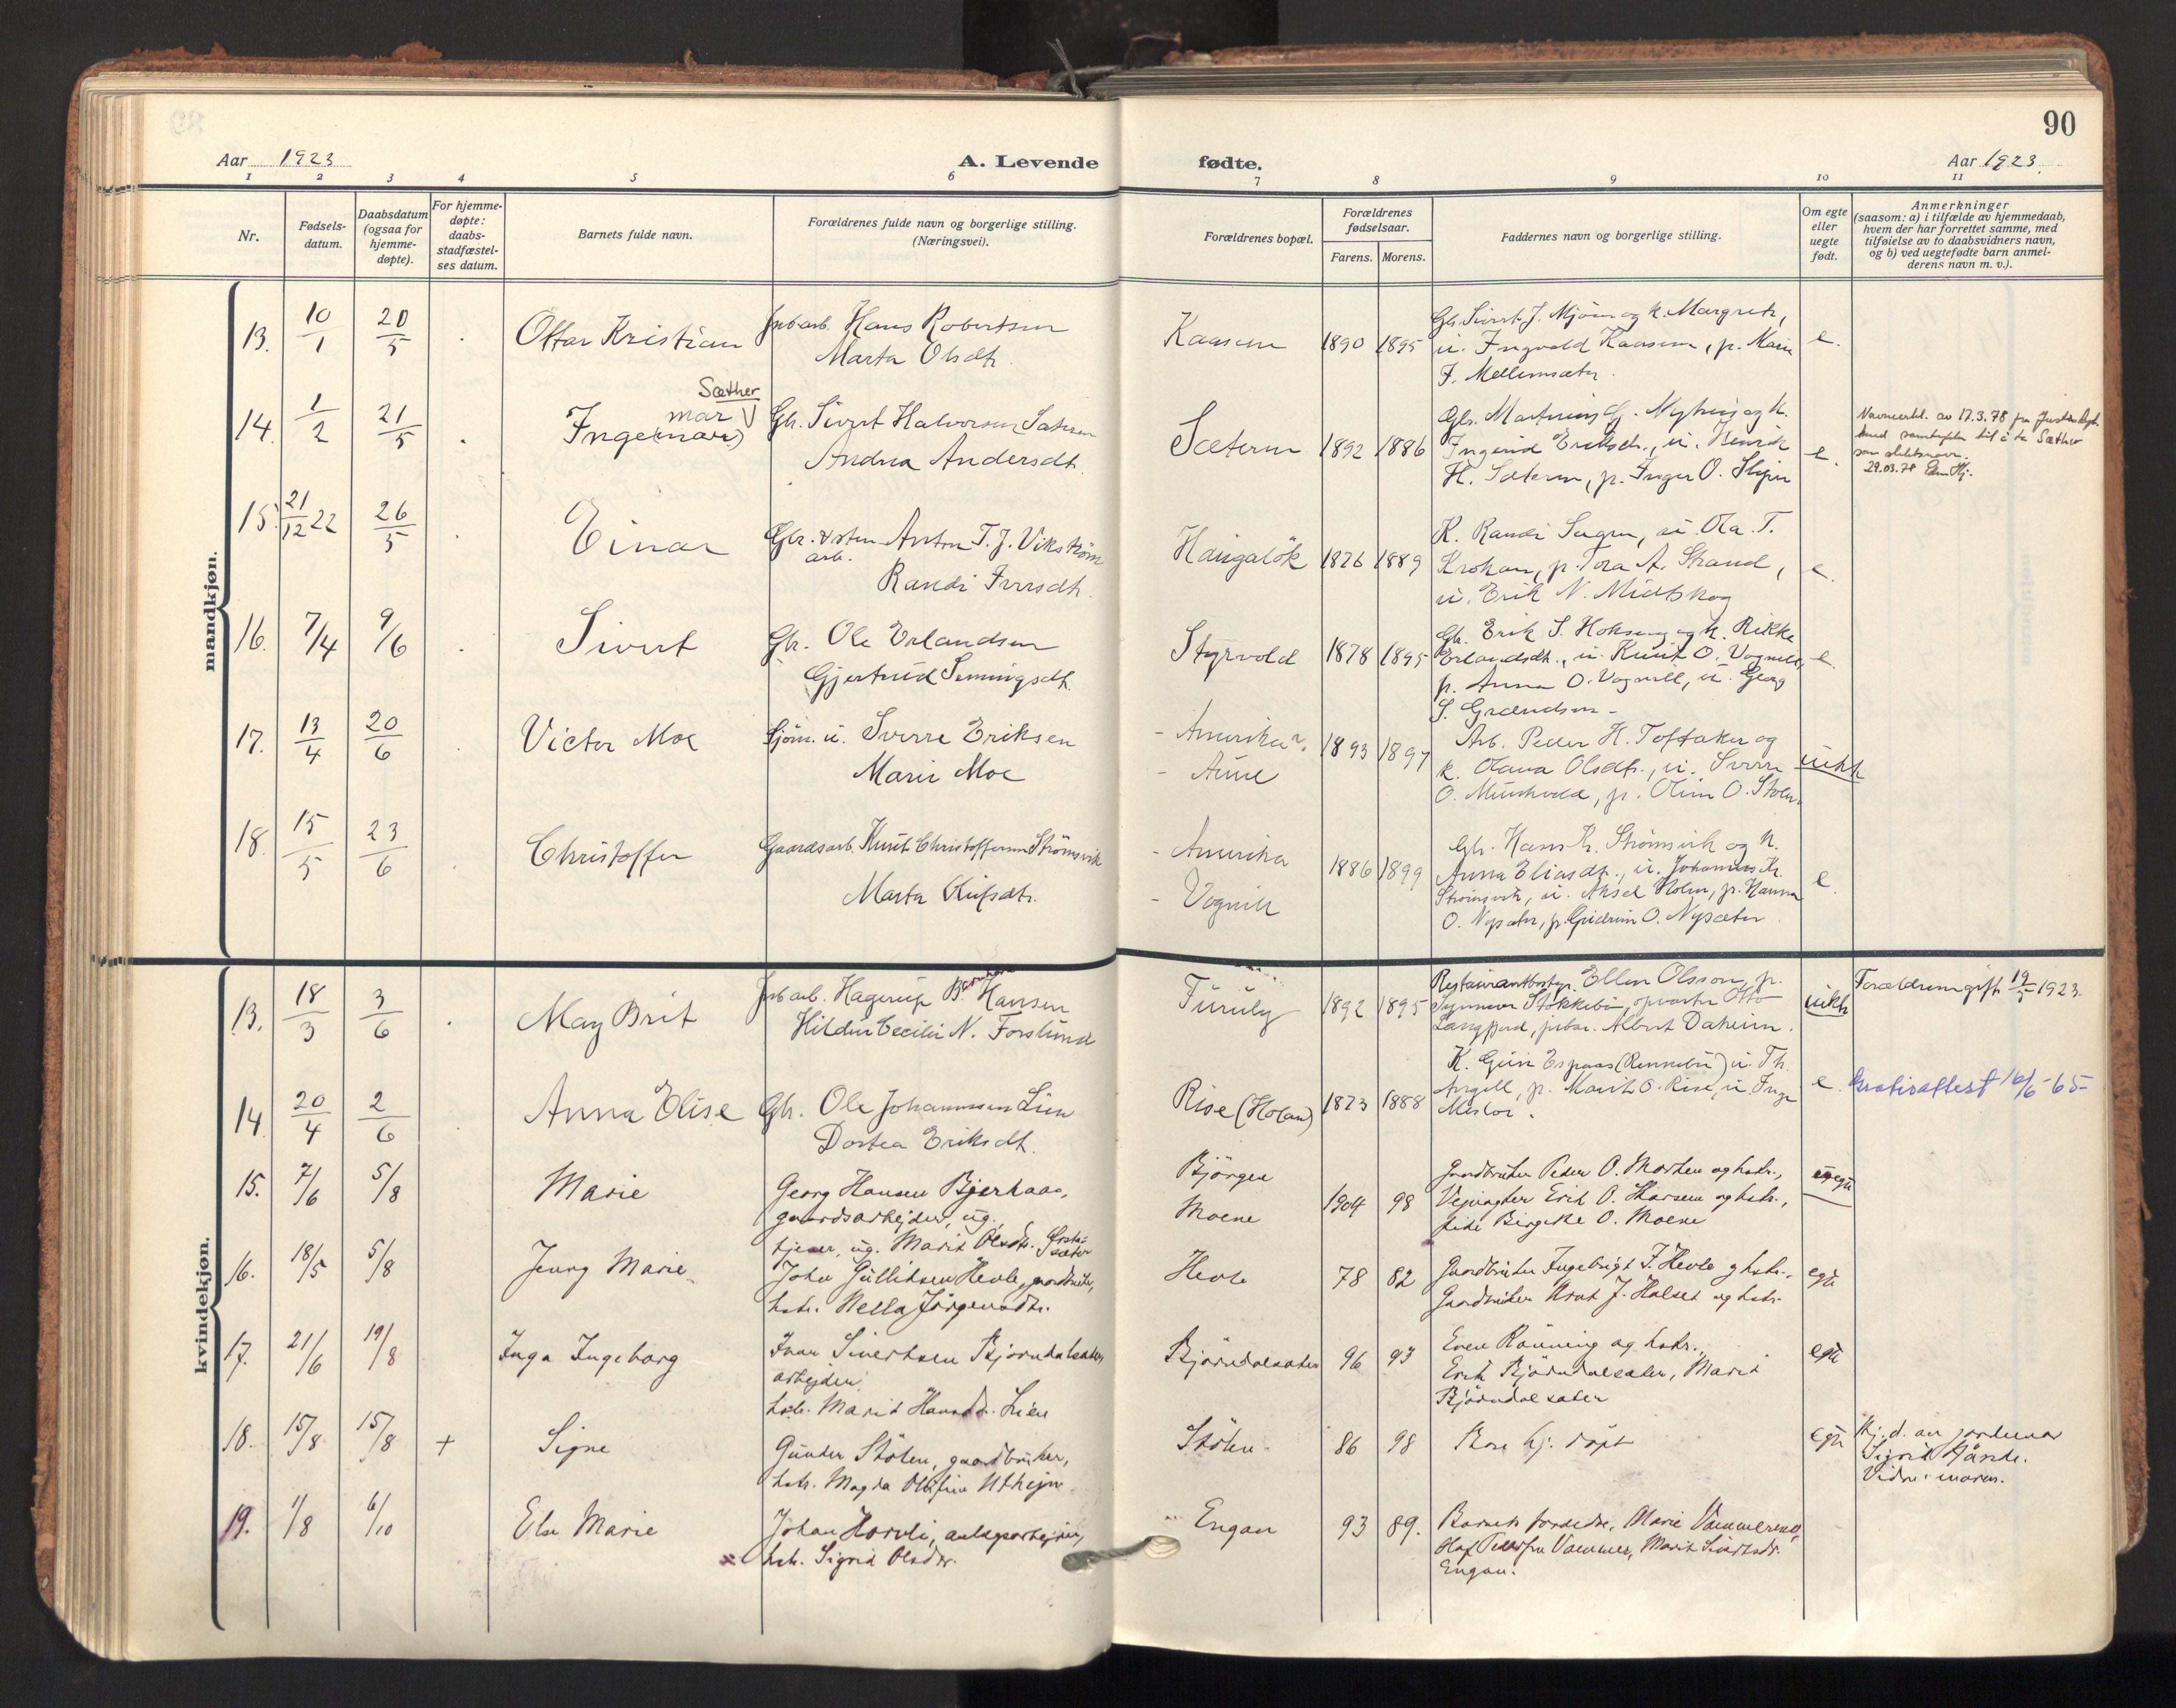 90
Aar 1923
A. Levende
fødte.
Aar 1923.
1 2 3 4 5 6 7 8 9 10 11
Nr.
Fødsels-
datum.
Daabsdatum
(ogsaa for
hjemme-
døpte).
For hjemme-
døpte:
daabs-
stadfæstel-
ses datum.
Barnets fulde navn.
Forældrenes fulde navn og borgerlige stilling.
(Næringsvei).
Forældrenes bopæl.
Forældrenes
fødselsaar.
Farens. Morens.
Faddernes navn og borgerlige stilling.
Om egte
eller
uegte
født.
Anmerkninger
(saasom: a) i tilfælde av hjemmedaab,
hvem der har forrettet samme, med
tilføielse av to daabsvidners navn,
og b) ved uegtefødte barn anmel-
derens navn m. v.).
mandkjøn.
13. 10/1 20/5 Ottar Kristian
Jnbarb. Hans Robertsen
Marta Olsdtr.
Kaasen 1890 1895
Gbr. Sivert J. Mjøen og k. Margrete,
u. Ingvald Kaasen, p. Marie
J. Mellemsæter.
e.
14. 1/2 21/5
Sæther
mar
Inge(mar)
Gbr. Sivert Halvorsen Sæteren
Andrea Andersdtr.
Sæteren 1892 1886
Ingerid Eriksdtr., u. Henrik
H. Sæteren, p. Inger O.
e.
som slektsnavn.
15. 21/12 22 26/5 Einar
arb. Anton T. J. Vikstrøm
Randi Iversdtr.
Haugaløk 1876 1889
K. Randi u. Ola T.
Krokan, p. Tora A. Strand,
u. Erik N. Midtskog
e.
16. 7/4 9/6 Sivert
Gbr. Ole Erlandsen
Gjertrud
Styrvold 1878 1895
Gbr. Erik S. og k. Rikke
Erlandsdtr., u. Knut O. Vognill,
p. Anna O. Vognill, u. Georg
S.
e.
17. 13/4 20/6 Victor Moe
Sjøm. u. Sverre Eriksen
Marie Moe
- Amerika
- Aune
1893 1897
Arb. Peder H. Toftaker og
k. Olava Olsdtr., u. Sverre
O. p. Oline O.
uekte
18. 15/5 23/6 Christoffer
Gaardsarb. Knut Christoffersen Strømsvik
Marta
- Amerika
- Vognill
1886 1899
Gbr. Hans Kr. Strømsvik og k.
Anna Eliasdtr., u. Johannes Kr.
Strømsvik, u. Aksel Holm, p. Hanna
O. Nysæter, p. Gudrun O. Nysæter.
e.
kvindekjøn.
13. 18/3 3/6 May Brit
Jnbarb. Hagerup B. Hansen
Hildur Cecilie N. Forslund
Furuly 1892 1895
Restaurantbestyr. Ellen Olsson, p.
opvarter Otto
Langfjord, jnbar. Albert Daheim.
uekte
Forældrene gift 19/5 1923.
14. 20/4 2/6 Anna Elise
Gbr. Ole Johannessen Lien
Dortea Eriksdtr.
Rise (Holan) 1873 1888
K. Guri Espaas (Rennebu) u. Th.
Angell, p. Marit O. Rise, u. Inge
Mislor.
e.
Gratisattest 16/6-65-
15. 7/6 5/8 Marie
Georg Hansen Bjerkaas,
gaardsarbejder, ug.
tjener, ug. Marit Olsdtr.
Bjørgen
Moene
1904 98
Gaardbruker Peder O. Morken og hstr.,
Vejvogter Erik O. og hstr.,
Birgitte O. Moene
uegte
16. 18/5 5/8 Jenny Marie
John Gulliksen Hevle, gaardbruker,
hstr. Nella Jørgensdtr.
Hevle 78 82
Gaardbruker Ingebrigt J. Hevle og hstr.,
Gaardbruker J. Halset og hstr.
egte
17. 21/6 19/8 Inga Ingeborg
Ivar Sivertsen Bjørndalsæter
arbejder,
hstr. Marit Hansdtr. Lien
Bjørndalsæter 96 93
Even Rønning og hstr.,
Erik Bjørndalsæter, Marit
Bjørndalsæter
egte
18. 15/8 15/8 + Signe
Gunder Stølen, gaardbruker,
hstr. Magda Olufine Utheim
Stølen 86 98
hj. døpt
egte
Hj. d. av jordmor
Sigrid
Vidne: moren.
19. 1/8 6/10 Else Marie
Johan anlægsarbejder,
hstr. Sigrid Olsdtr.
Engan 93 89.
Barnets forældre, Marie
Vammer, Marit Sivertsdr.
Engan.